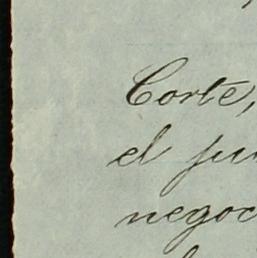 Corte,
el
negoc